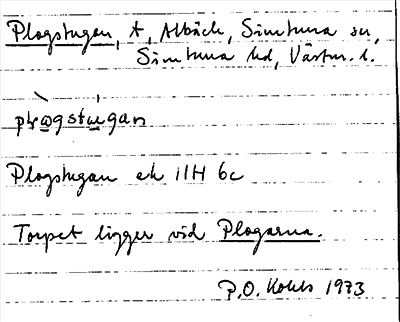 Plogstugan, t, Albäck, Simtuna sn,
Simtuna hd, Västm. l.
plɷgstugan
Plogstugan ek 11H 6c
Torpet ligger vid Plogarna.
P.O. 1973